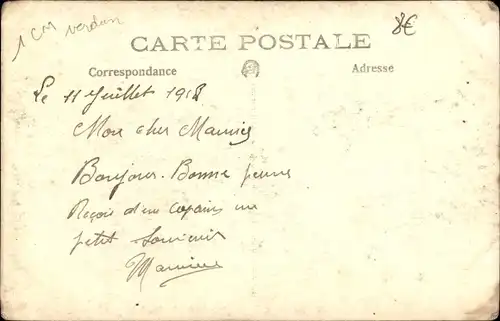 1 CM verdun
8€
CARTE POSTALE
Correspondance
Adresse
Le 11 Juillet 1918
Mon cher Maurice
Bonjour. Bonne
Reçois d'un copain un
petit Souvenir